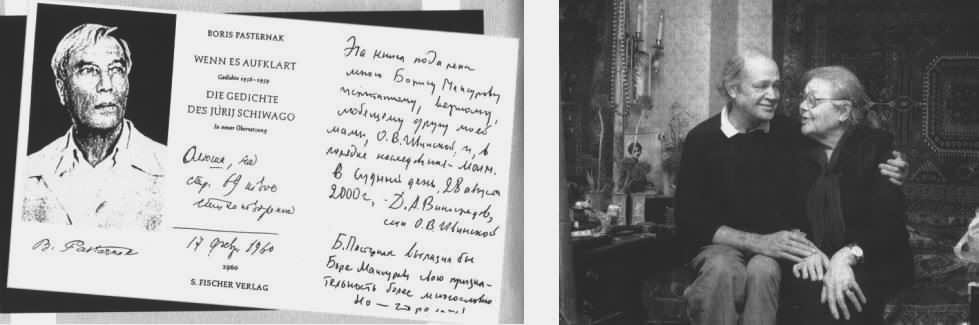 BORIS PASTERNAK
WENN ES AUFKLART
Gedichte 1956–1959
DIE GEDICHTE
DES JURIJ SCHIWAGO
In neuer Übersetzung
Олюша, на
стр. 69 твое
стихотворение
17 февр 1960
1960
S. FISCHER VERLAG
B. Pasternak
Эта книга подарена
мною Борису Мансурову
испытанному, верному,
любящему другу моей
мамы, О.В.Ивинской, и, в
порядке наследования - моим.
В судный день, 28 августа
2000 г, - Д.А.Виноградов,
сын О.В.Ивинской
Б.Пастернак выразил бы
Боре Мансурову свою призна-
тельность более многословно
Но —